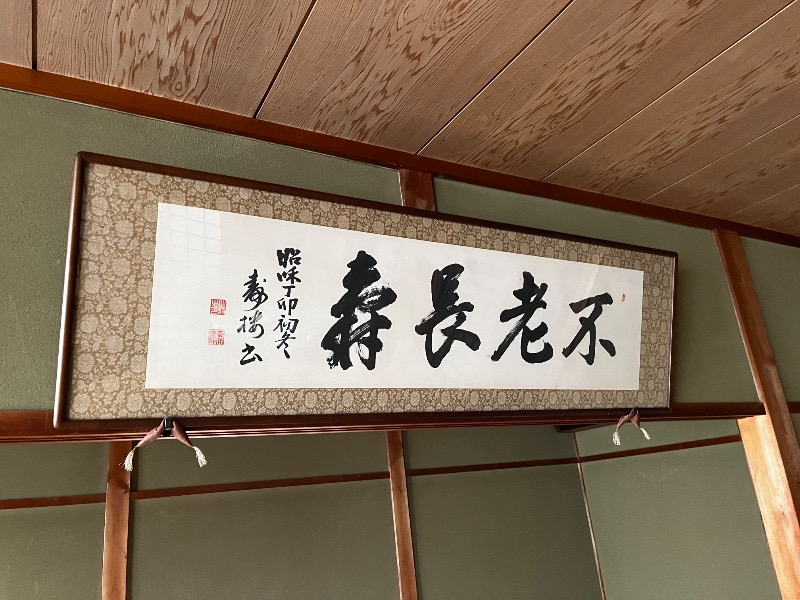 不老長寿
昭和丁卯初冬
寿楼書